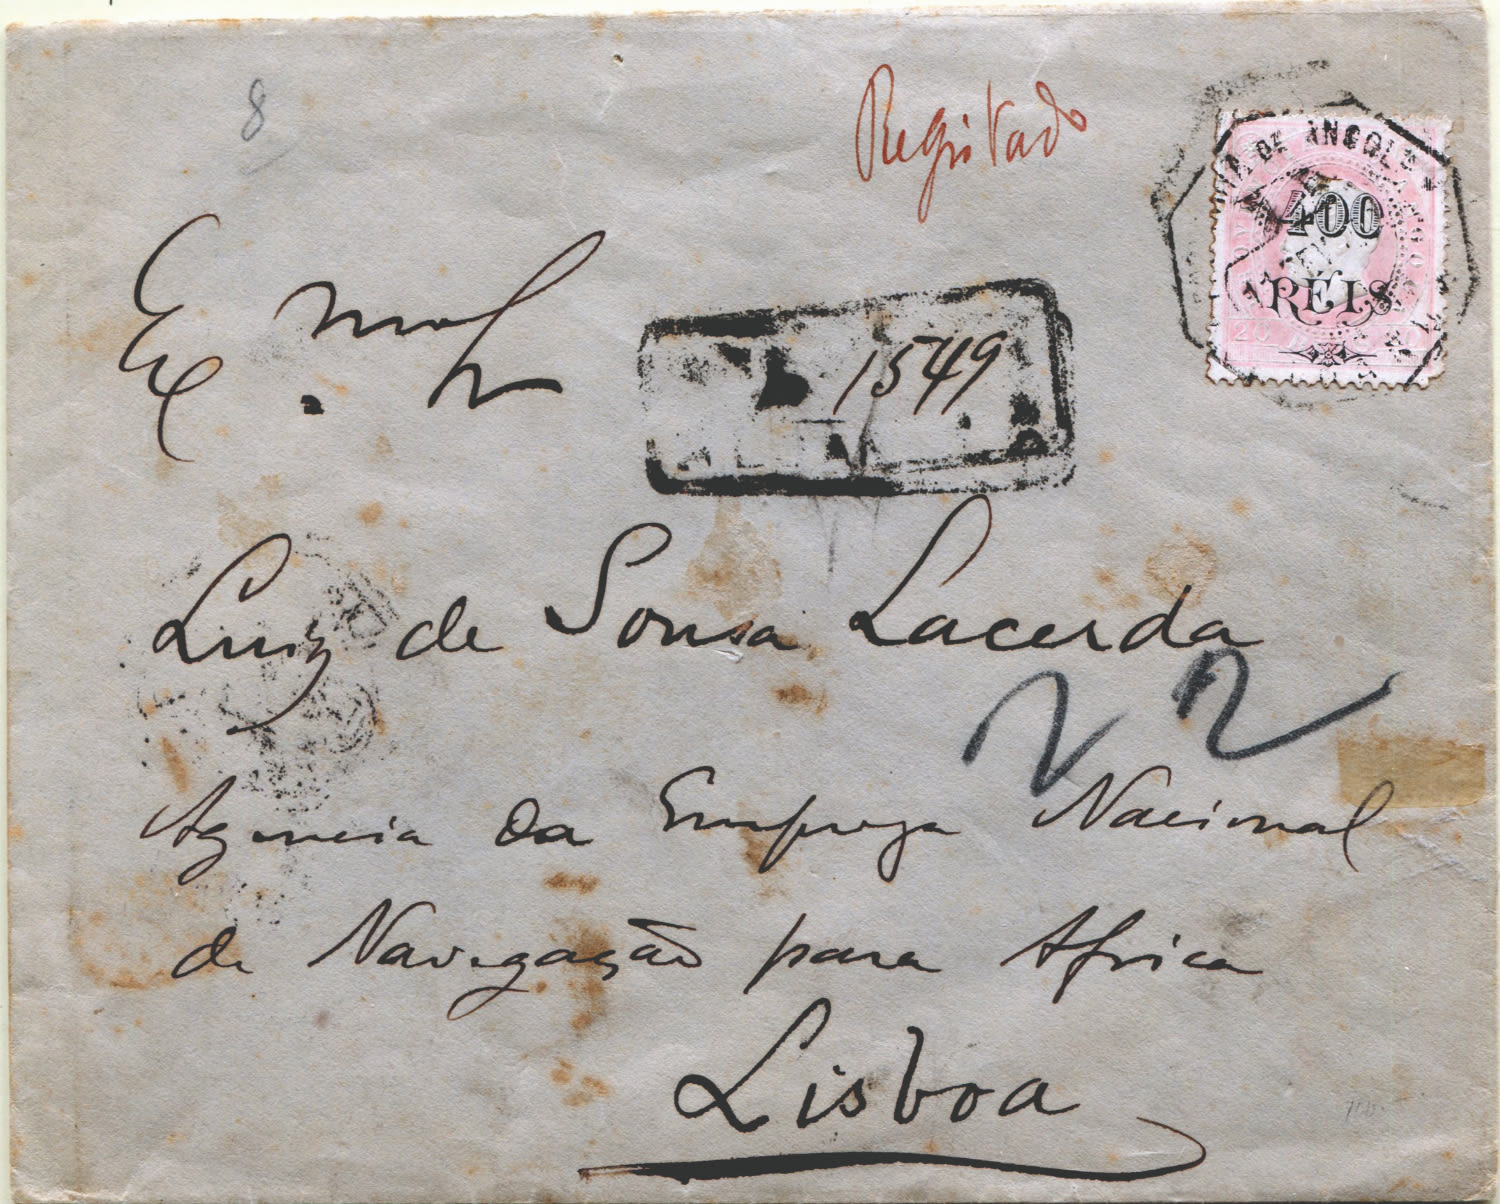 8
Registado
VIA DE ANGOLA
400
RÉIS
20
Ex.mo Sr
1549
Luiz de Sousa Lacerda
22
Agencia da Empreza Nacional
de Navegação para Africa
Lisboa